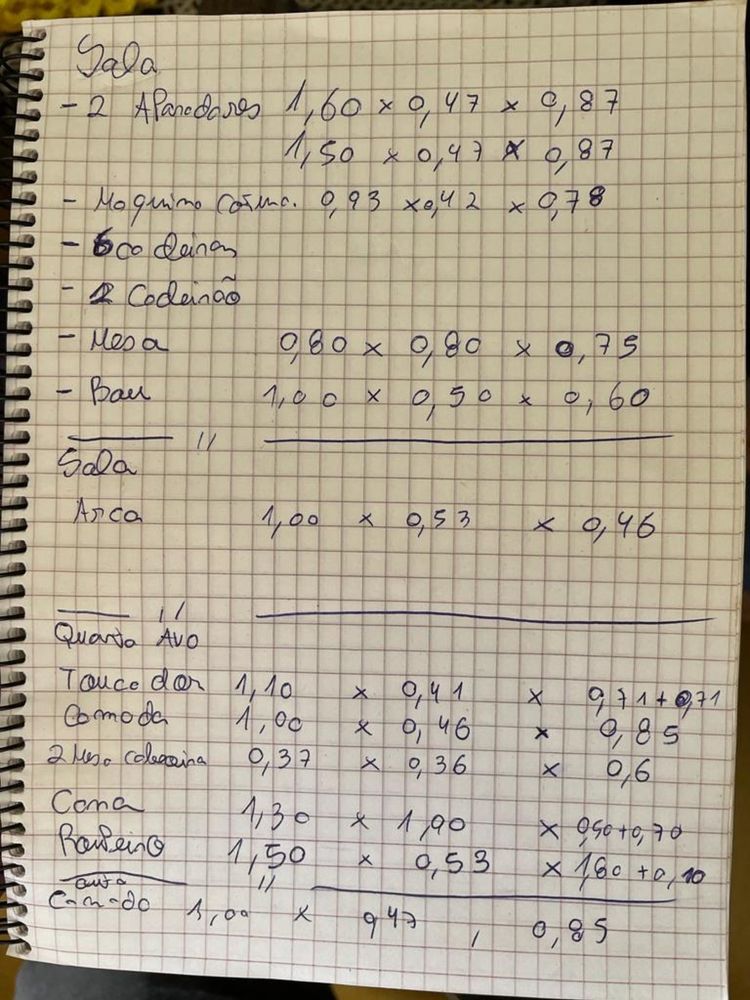 Sala
- 2 Aparadores 1,60 x 0,47 x 0,87
1,50 x 0,47 x 0,87
- Maquina Costura. 0,93 x 0,42 x 0,78
- 6 cadeiras
- 2 Cadeirão
- Mesa 0,80 x 0,80 x 0,75
- Bau 1,00 x 0,50 x 0,60
//
Sala
Arca 1,00 x 0,53 x 0,46
//
Quarto Avo
Toucador 1,10 x 0,41 x 0,71+0,71
Comoda 1,00 x 0,46 x 0,85
2 Mesa cabeceira 0,37 x 0,36 x 0,6
Cama 1,30 x 1,90 x 0,50+0,70
1,50 x 0,53 x 1,60+0,10
//
1,00 x 0,47 , 0,85